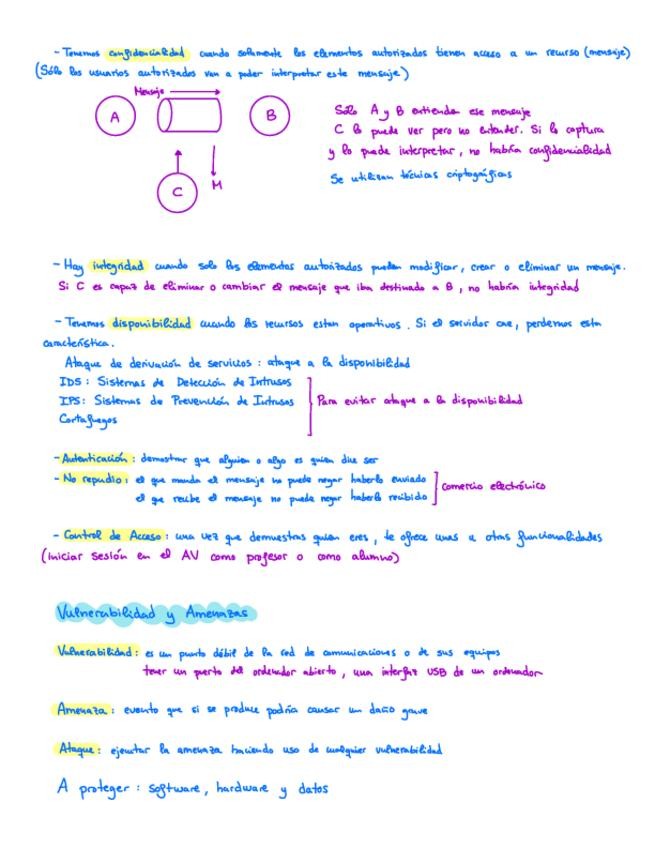 - Tenemos confidencialidad cuando solamente los elementos autorizados tienen acceso a un recurso (mensaje)
(Sólo los usuarios autorizados van a poder interpretar este mensaje)
Mensaje
A
B
C
M
Sólo A y B entienden ese mensaje
C lo puede ver pero no entender. Si lo captura
y lo puede interpretar, no habría confidencialidad
Se utilizan técnicas criptográficas
- Hay integridad cuando solo los elementos autorizados pueden modificar, crear o eliminar un mensaje.
Si C es capaz de eliminar o cambiar el mensaje que iba destinado a B, no habría integridad
- Tenemos disponibilidad cuando los recursos estan operativos. Si el servidor cae, perdemos esta
característica.
Ataque de derivación de servicios: ataque a la disponibilidad
IDS: Sistemas de Detección de Intrusos
IPS: Sistemas de Prevención de Intrusos
Cortafuegos
Para evitar ataque a la disponibilidad
- Autenticación: demostrar que alguien o algo es quien dice ser
- No repudio: el que manda el mensaje no puede negar haberlo enviado
el que recibe el mensaje no puede negar haberlo recibido
comercio electrónico
- Control de Acceso: una vez que demuestras quien eres, te ofrece unas u otras funcionalidades
(iniciar sesión en el AV como profesor o como alumno)
Vulnerabilidad y Amenazas
Vulnerabilidad: es un punto débil de la red de comunicaciones o de sus equipos
tener un puerto del ordenador abierto, una interfaz USB de un ordenador
Amenaza: evento que si se produce podría causar un daño grave
Ataque: ejecutar la amenaza haciendo uso de cualquier vulnerabilidad
A proteger: software, hardware y datos